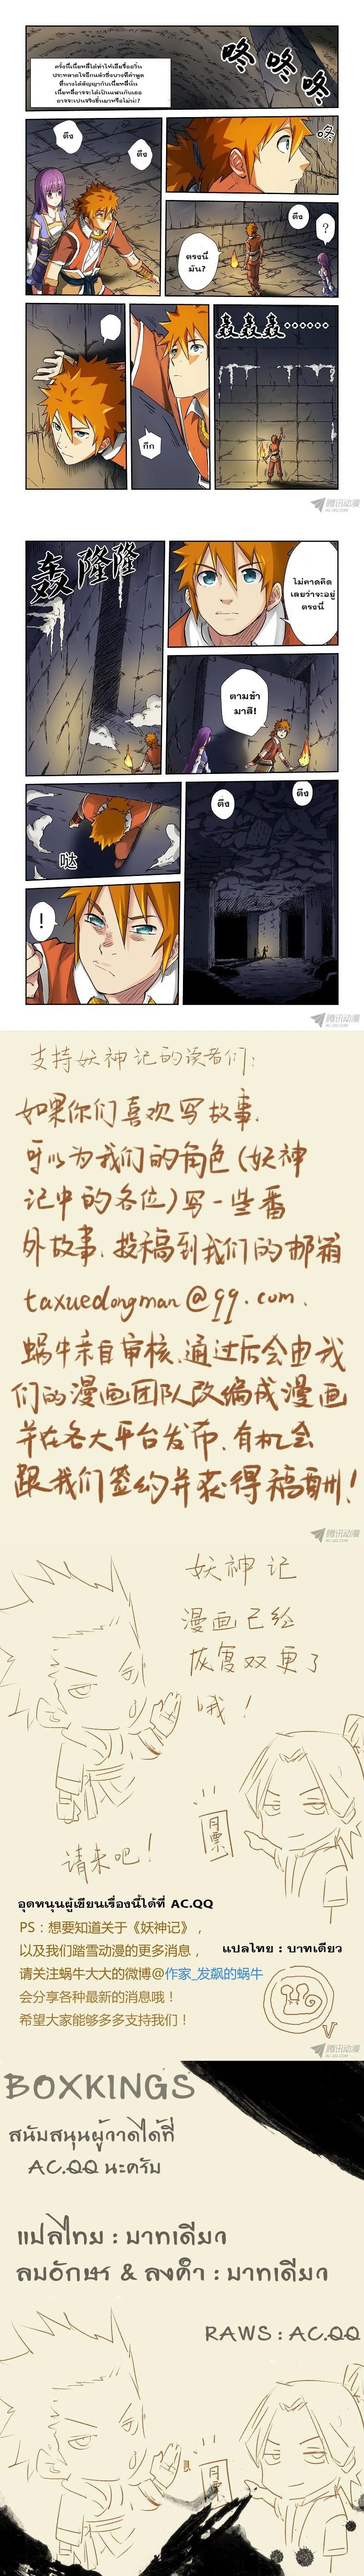 ครั้งนี้เนี่ยหลีได้ทำให้เสี่ยวหนิงเอ๋อ
咚 咚 咚
ตึง
ตึง
咚
ตรงนี้
มัน?
ตึง
?
กึก
轰轰轰······
腾讯动漫
AC.QQ.COM
轰隆隆
ไม่คาดคิด
เลยว่าจะอยู่
ตรงนี้
ตามข้า
มาสิ!
哒
ตึง
ตึง
!
腾讯动漫
AC.QQ.COM
支持妖神记的读者们:
如果你们喜欢写故事,
可以为我们的角色(妖神
记中的各位)写一些番
外故事,投稿到我们的邮箱
taxuedongman@qq.com,
蜗牛亲自审核,通过后会由我
们的漫画团队改编成漫画
并在各大平台发布,有机会
跟我们签约并获得稿酬!
腾讯动漫
AC.QQ.COM
妖神记
漫画已经
恢复双更了
哦!
月票
请来吧!
อุดหนุนผู้เขียนเรื่องนี้ได้ที่ AC.QQ
PS：想要知道关于《妖神记》，
以及我们踏雪动漫的更多消息，
แปลไทย : บาทเดียว
请关注蜗牛大大的微博@作家_发飙的蜗牛
会分享各种最新的消息哦！
希望大家能够多多支持我们！
V
腾讯动漫
AC.QQ.COM
BOXKINGS
สนับสนุนผู้วาดได้ที่
AC.QQ นะครับ
แปลไทย : บาทเดียว
ลบอักษร & ลงคำ : บาทเดียว
RAWS : AC.QQ
月票